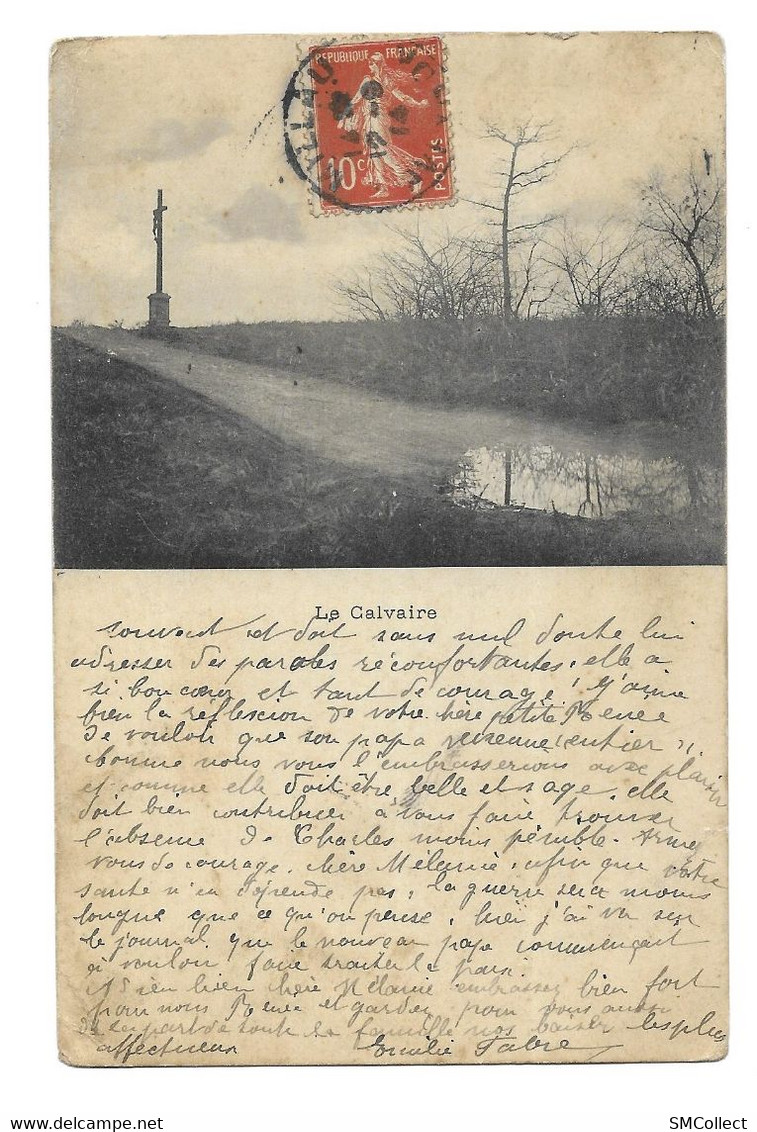 REPUBLIQUE FRANÇAISE
10c POSTES
Le Calvaire
souvent et doit sans nul doute lui
adresser des paroles réconfortantes, elle a
si bon coeur et tant de courage! J'aime
bien la réflexion de votre chère petite Renée
de vouloir que son papa revienne (entier),
comme nous vous l'embrasserions avec plaisir
et comme elle doit être belle et sage, elle
doit bien contribuer à vous faire trouver
l'absence de Charles moins pénible. Armez
vous de courage, chère Mélanie, afin que votre
santé n'en dépende pas, la guerre sera moins
longue que ce qu'on pense, hier j'ai vu sur
le journal que le nouveau pape commençait
à vouloir faire traiter la paix.
bien chère Mélanie embrassez bien fort
pour nous Renée et gardez pour vous aussi
de la part de toute la famille nos baisers les plus
affectueux Emilie Fabre
SMCollect